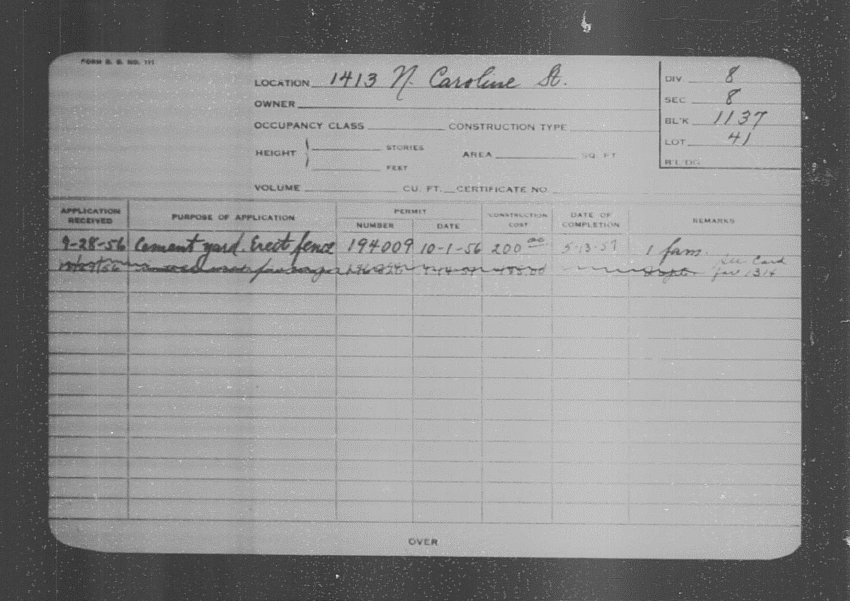 FORM B. B. NO. 111
LOCATION 1413 N. Caroline St.
DIV. 8
OWNER
SEC 8
OCCUPANCY CLASS CONSTRUCTION TYPE
BL'K 1137
LOT 41
HEIGHT STORIES AREA SQ. FT
FEET
BLDG
VOLUME CU. FT. CERTIFICATE NO
APPLICATION RECEIVED PURPOSE OF APPLICATION PERMIT NUMBER DATE CONSTRUCTION COST DATE OF COMPLETION REMARKS
9-28-56 Cement yard. Erect fence 194009 10-1-56 200.00 5-13-57 1 fam.
See Card
for 1314
OVER